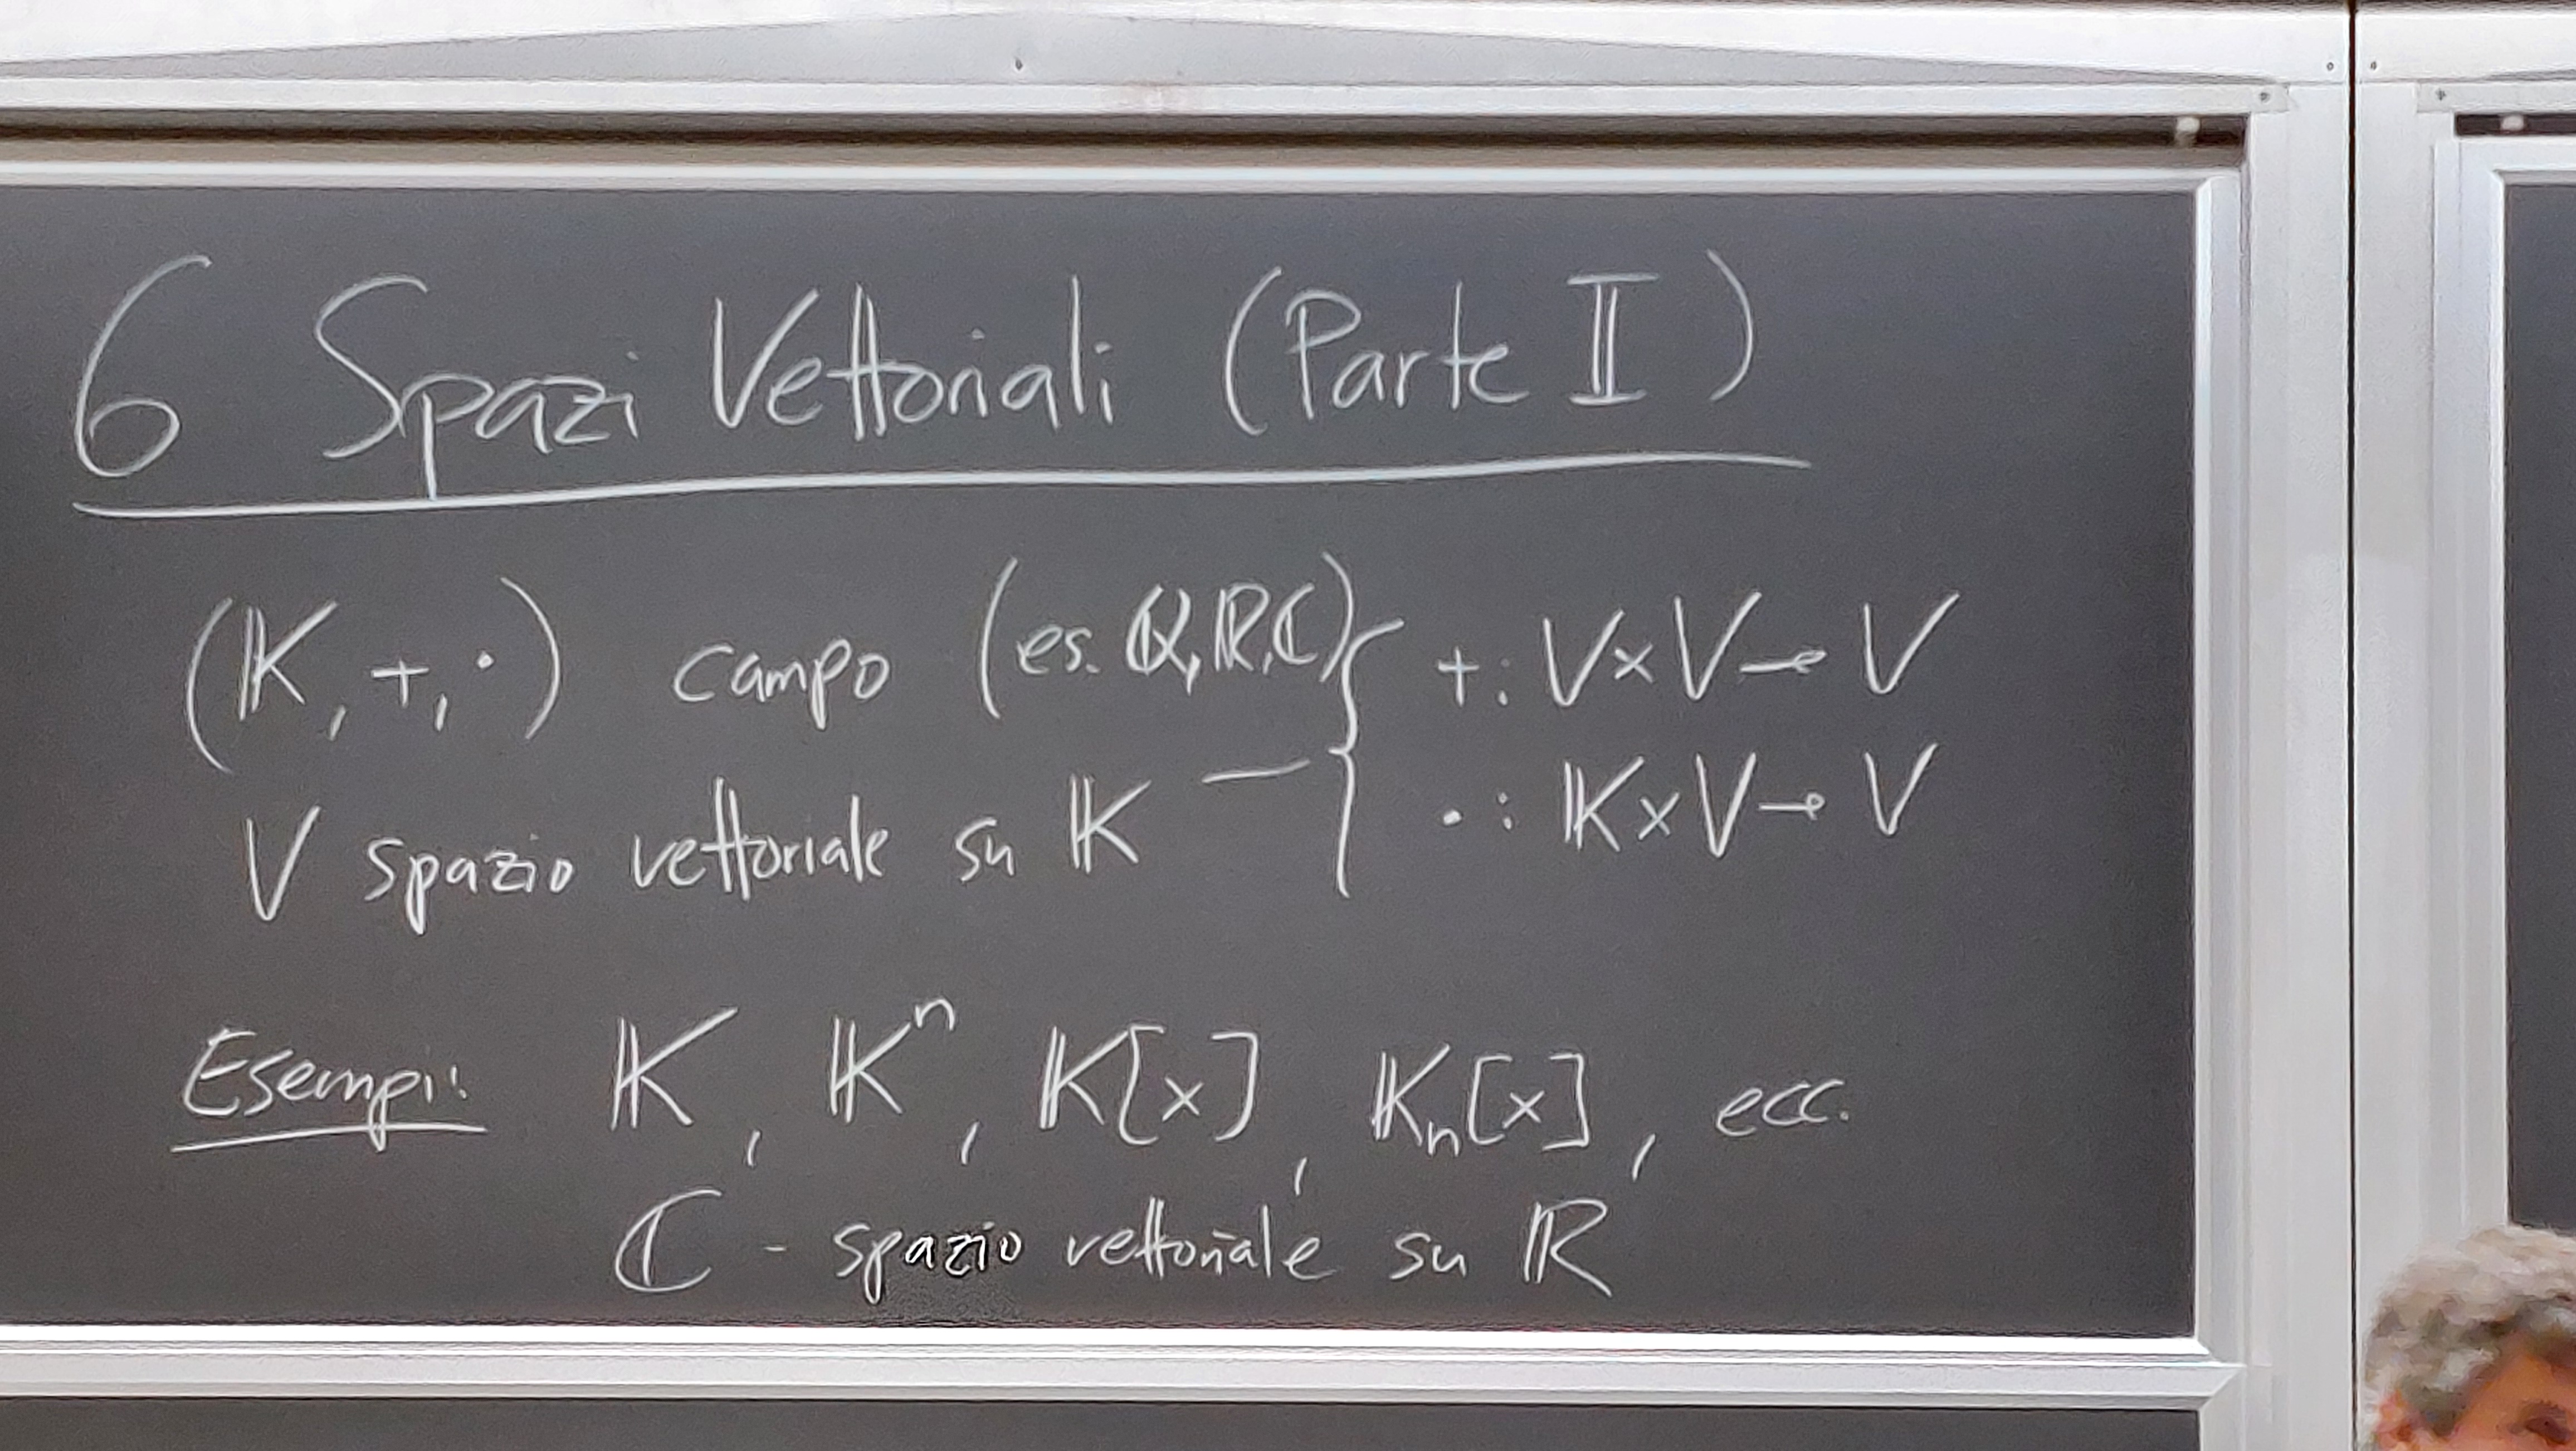 6 Spazi Vettoriali (Parte II)
(𝕂, +, ·) campo (es. ℚ, ℝ, ℂ) { +: V×V → V
V spazio vettoriale su 𝕂 — { ·: 𝕂×V → V
Esempi: 𝕂, 𝕂ⁿ, 𝕂[x], 𝕂ₙ[x], ecc.
ℂ - spazio vettoriale su ℝ